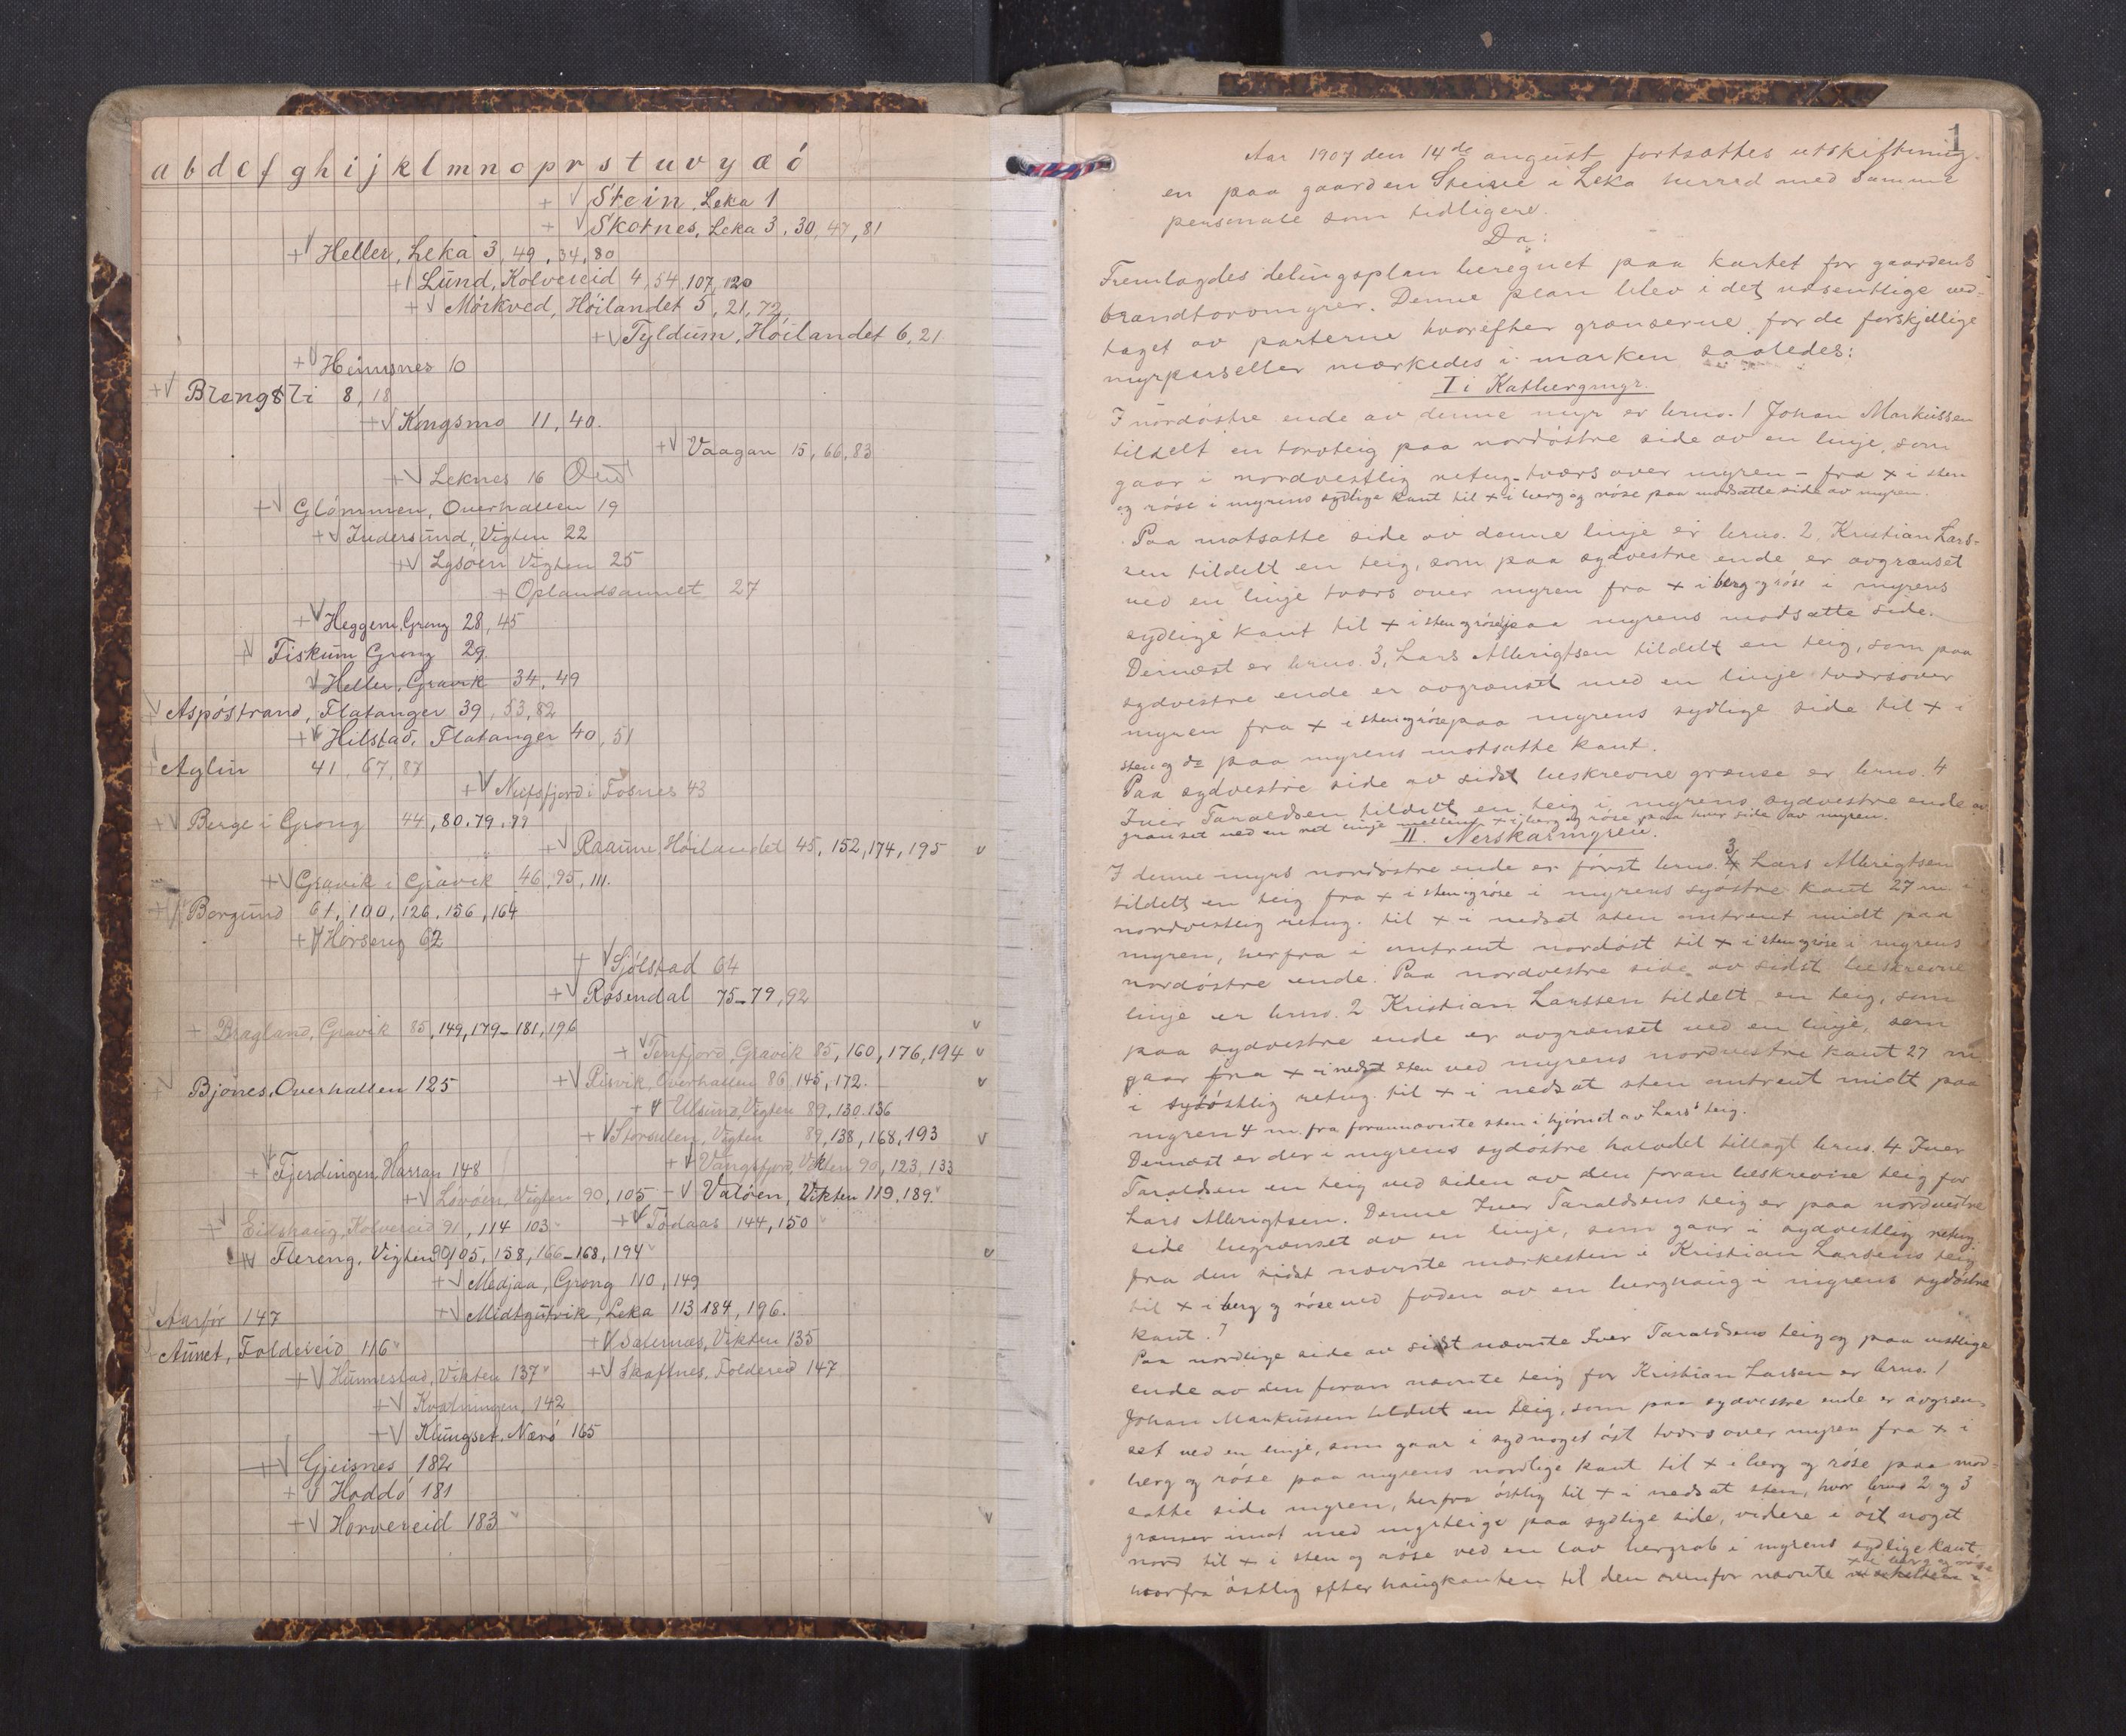 a b d e f g h i j k l m n o p r s t u v y æ ó
+ √ Stein, Leka 1
+ √ Skotnes, Leka 3, 30, 47, 81
+ √ Heller, Leka 3, 49, 34, 80
+ √ Lund, Kolvereid 4, 54, 107, 120
+ √ Mörkved, Höilandet 5, 21, 72,
+ √ Tyldum, Höilandet 6, 21
+ √ Heimsnes 10
+ √ Brengsli 8, 18
+ √ Kongsmo 11, 40.
+ √ Vaagan 15, 66, 83
+ √ Leknes 16
+ √ Glömmen, Overhallen 19
+ √ Indersund, Vigten 22
+ √ Lysöen Vigten 25
+ Oplandsaunet 27
+ √ Heggem, Grong 28, 45
+ √ Fiskum Grong 29.
√ Heller, Gravik 34, 49
√ Aspöstrand, Flatanger 39, 53, 82
+ √ Hilstad, Flatanger 40, 51
+ √ Aglin 41, 67, 87
+ √ Nufsfjord i Fosnes 43
+ √ Berge i Grong 44, 80, 79, 99
+ √ Raaum Höilandet 45, 152, 174, 195 v
+ √ Gravik i Gravik 46, 95, 111.
+ √ Borgund 61, 100, 126, 156, 164
+ √ Horseng 62
+ √ Sjölstad 64
+ √ Rosendal 75-79, 92
+ Bragland, Gravik 85, 149, 179-181, 196 v
+ √ Tenfjord, Gravik 85, 160, 176, 194 v
+ √ Risvik, Overhallen 86, 145, 172. v
+ √ Bjönes, Overhallen 125
+ √ Ulsund, Vigten 89, 130, 136
+ √ Storsulen, Vigten 89, 138, 168, 193 v
+ √ Vangsfjord, Vikten 90, 123, 133
+ √ Fjerdingen, Harran 148
+ √ Lovöen, Vigten 90, 105 - √ Valöen, Vikten 119, 189.
+ √ Eidshaug, Kolvereid 91, 114 103 + √ Fodaas 144, 150
+ √ Flereng, Vigten 90, 105, 158, 166-168, 194 v
+ √ Medjaa, Grong 110, 149
√ Aarför 147
+ √ Midtgutvik, Leka 113 184, 196.
Aunet, Foldereid 116
+ √ Salernæs, Vikten 135
+ √ Hunnestad, Vikten 137 + √ Skaftnes, Foldereid 147
+ √ Kvatningen, 142
+ √ Klungset, Nærö 165
+ √ Gjeisnes 182
+ √ Hoddö 181
+ √ Horvereid 183 v
1
Aar 1907 den 14de august fortsattes utskiftning-
en paa gaarden Steine i Leka herred med samme
personale som tidligere.
Da:
Fremlagdes delingsplan beregnet paa kartet for gaardens
brændtorvmyrer. Denne plan blev i det væsentlige ved-
taget av parterne hvorefter grænserne for de forskjellige
myrparseller mærkedes i marken saaledes:
I i Katbergmyr.
I nordöstre ende av denne myr er brno. 1 Johan Markussen
tildelt en torvteig paa nordöstre side av en linje, som
gaar i nordvestlig retng. tværs over myren - fra x i sten
og röse i myrens sydlige kant til x i berg og röse paa modsatte side av myren.
Paa motsatte side av denne linje er brno. 2. Kristian Lars-
sen tildelt en teig, som paa sydvestre ende er avgrænset
ved en linje tværs over myren fra x i berg og röse i myrens
sydlige kant til x i sten og röse paa myrens modsatte side.
Dernæst er brno. 3, Lars Albrigtsen tildelt en teig, som paa
sydvestre ende er avgrænset med en linje tværsover
myren fra x i sten og röse paa myrens sydlige side til x i
sten og do paa myrens motsatte kant.
Paa sydvestre side av sidst beskrevne grænse er brno. 4
Iver Taraldsen tildelt en teig i myrens sydvestre ende av
grænset ved en ret linje mellem x i berg og röse paa hver side av myren.
II. Nerskarmyren.
I denne myrs nordöstre ende er först brno. 3 Lars Albrigtsen
tildelt en teig fra x i sten og röse i myrens sydöstre kant 27 m i
nordvestlig retng. til x i nedsat sten omtrent midt paa
myren, herfra i omtrent nordöst til x i sten og röse i myrens
nordöstre ende. Paa nordvestre side av sidst beskrevne
linje er brno. 2 Kristian Larssen tildelt en teig, som
paa sydvestre ende er avgrænset ved en linje, som
gaar fra x i nedsat sten ved myrens nordvestre kant 27 m
i sydöstlig retng. til x i nedsat sten omtrent midt paa
myren 4 m. fra forannævnte sten i hjörnet av Lars's teig.
Dernæst er der i myrens sydöstre halvdel tillagt brno. 4 Iver
Taraldsen en teig ved siden av den foran beskrevne teig for
Lars Albrigtsen. Denne Iver Taraldsens teig er paa nordvestre
side begrænset av en linje, som gaar i sydvestlig retng.
fra den sidst nævnte merkesten i Kristian Larsens teig
til x i berg og röse ved foden av en berghaug i myrens sydöstre
kant.
Paa nordlige side av sidst nævnte Iver Taraldsens teig og paa vestlige
ende av den foran nævnte teig for Kristian Larsen er brno. 1
Johan Markussen tildelt en teig, som paa sydvestre ende er avgræn-
set ved en linje, som gaar i syd noget öst tværs over myren fra x i
berg og röse paa myrens nordlige kant til x i berg og röse paa mod-
satte side myren, herfra östlig til x i nedsat sten, hvor brno 2 og 3
grænser imot med myrteige paa sydlige side, videre i öst noget
nord til x i sten og röse ved en lav bergrab i myrens sydlige kant,
hvorfra östlig efter haugkanten til den ovenfor nævnte x i berg og röse